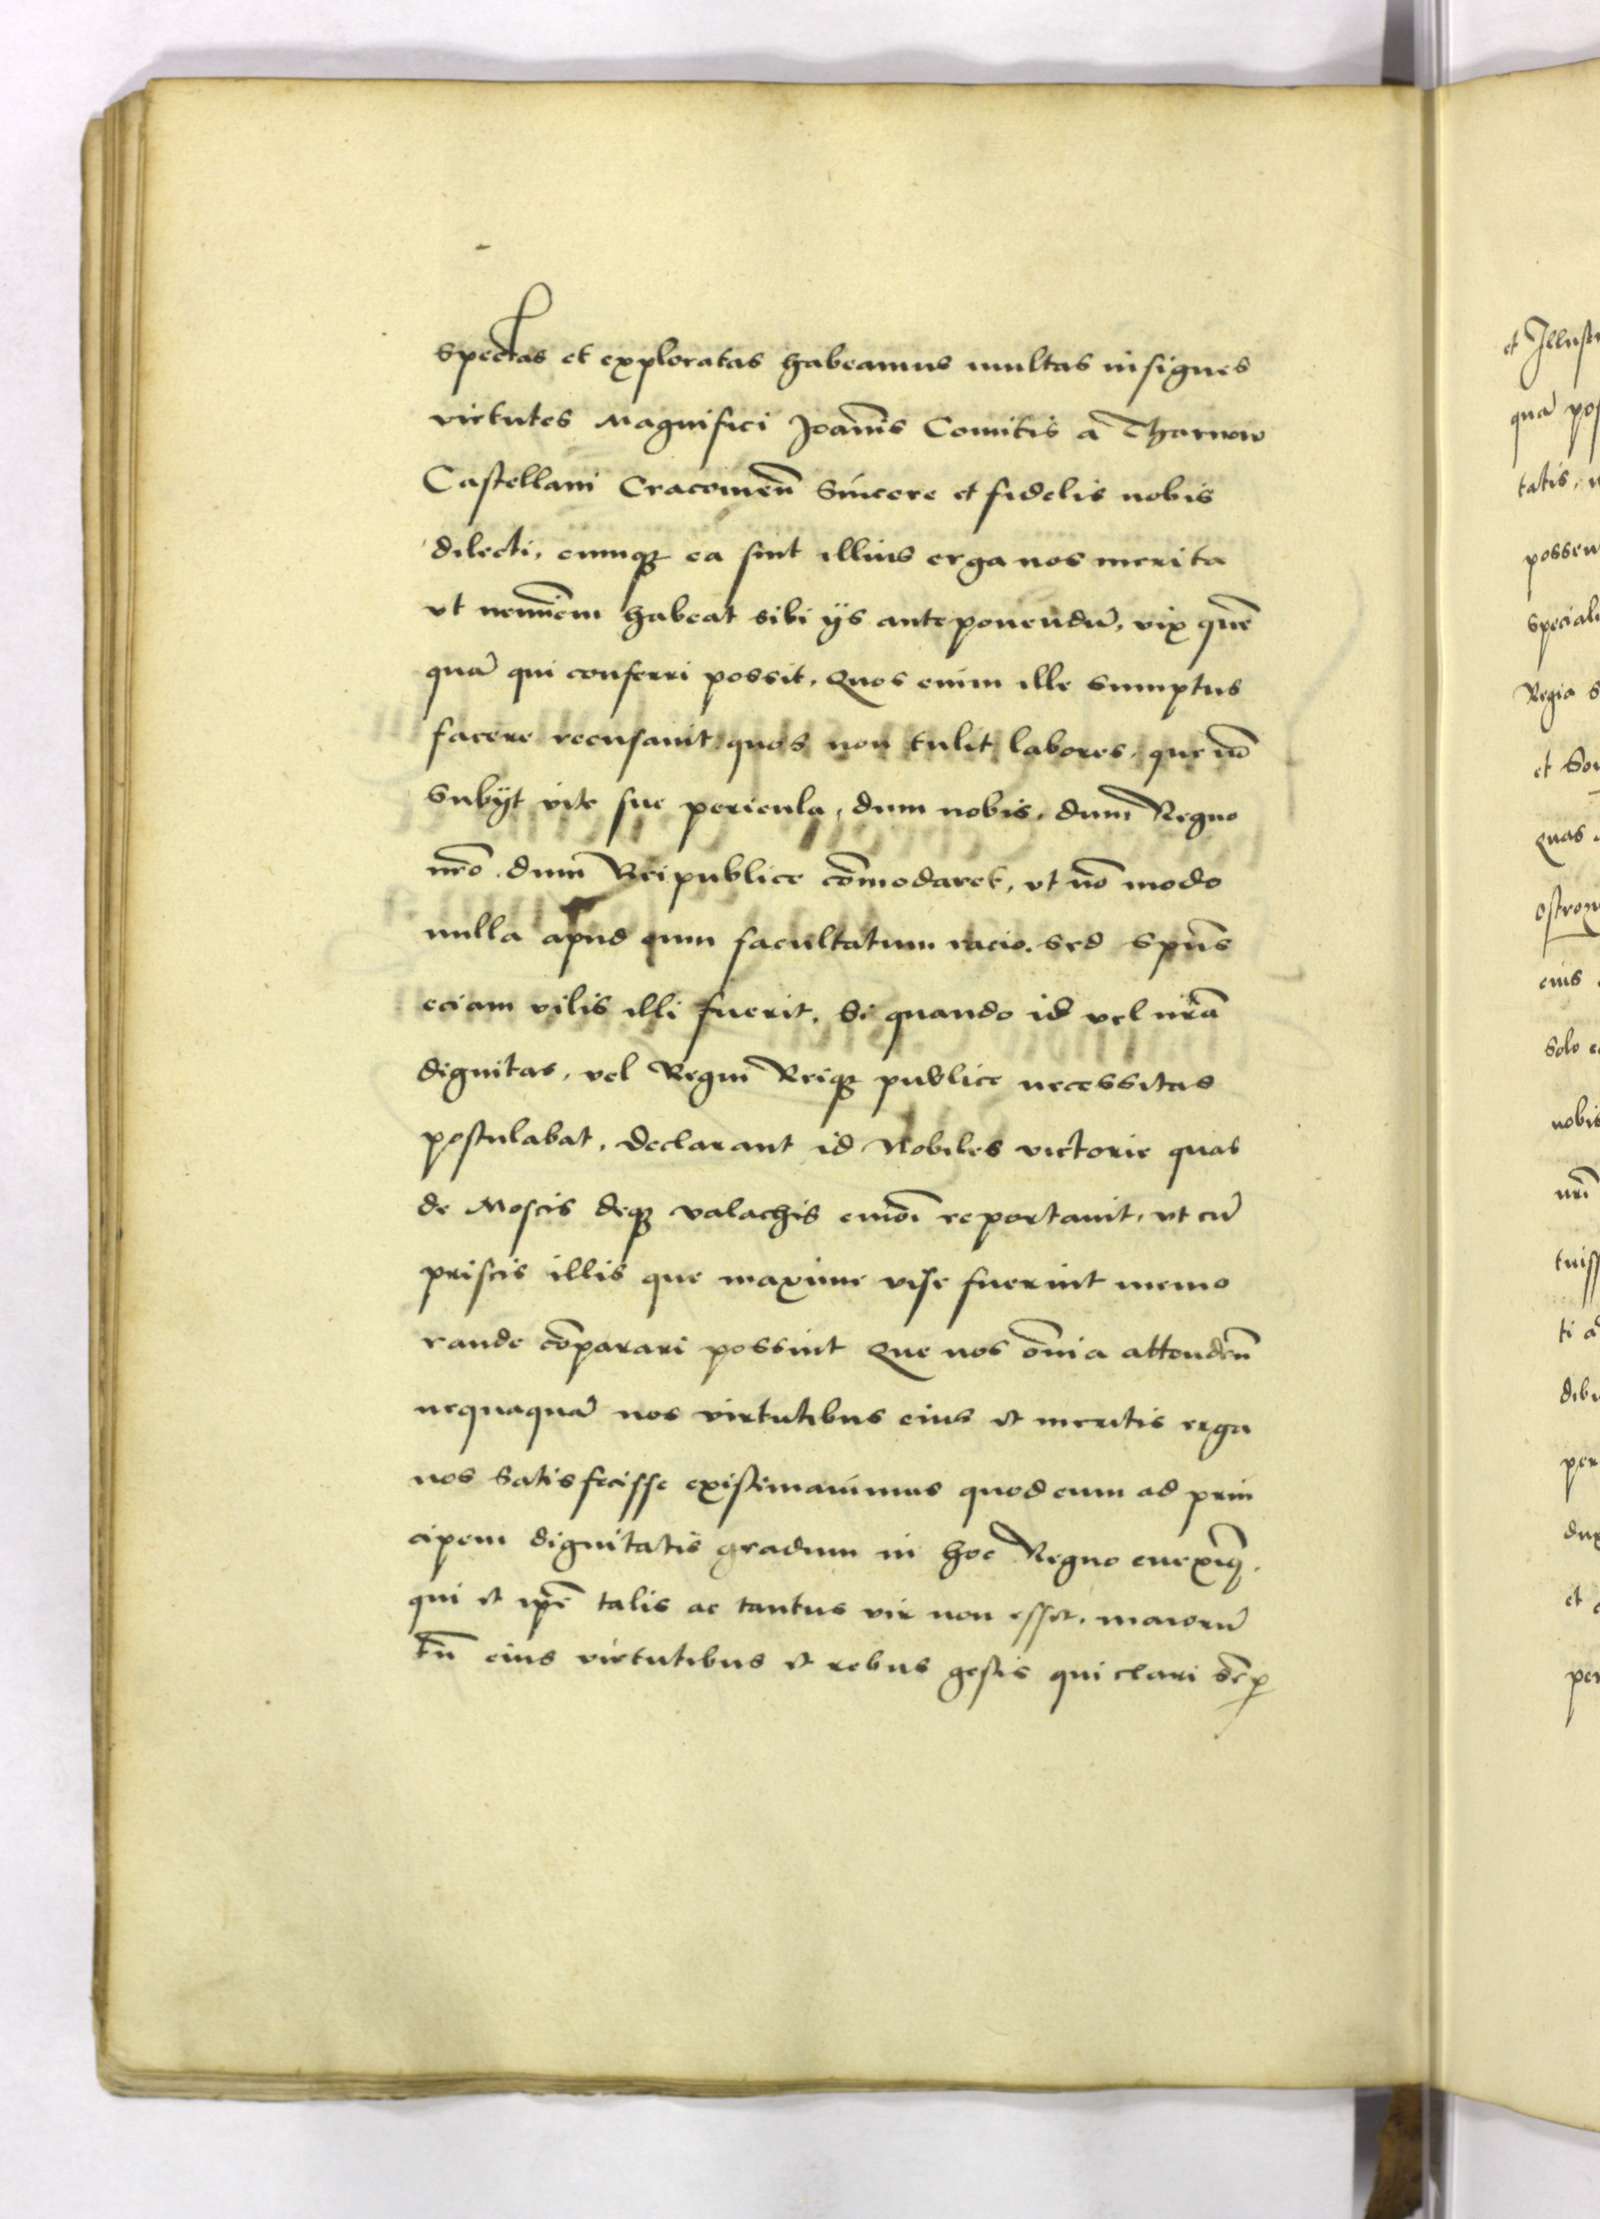 spectas et exploratas habeamus multas insignes
virtutes Magnifici Joan̄is Comitis a Tharnow
Castellani Cracovien̄ Sincere et fidelis nobis
dilecti, cumqꝫ ea sint illius erga nos merita
vt nemin̄em habeat sibi ijs anteponendū, vix quē
quā qui conferri possit. Quos enim ille sumptus
facere recusavit, quos non tulit labores, que nō
Subijt vite sue pericula, dum nobis, dum Regno
nr̄o dum Reipublice com̄odaret, vt nō modo
nulla apud eum facultatum racio. sed Spūs
eciam vilis illi fuerit, Si quando id vel nr̄a
dignitas, vel Regni Reiqꝫ publice necessitas
postulabat. Declarant id Nobiles victorie quas
de Moscis deqꝫ valachis eiusmōi reportavit, vt cū
priscis illis que maxime vise fuerint memo
rande cōparari possint Que nos om̄ia attenden̄
nequaquā nos virtutibus eius et meritis erga
nos Satisfecisse existimavimus quod eum ad prin
cipem dignitatis gradum in hoc Regno eveximꝰ.
qui et ipē talis ac tantus vir non esset, maiorū
tn̄ eius virtutibus et rebus gestis qui clari sēp
et Illustr
quā pos
tatis,
possen
speciali
Regia S
et Sor
Quas
ostroz
eius
Solo
nobis
nr̄i
tuiss
ti a
dibu
per
dux
et
per